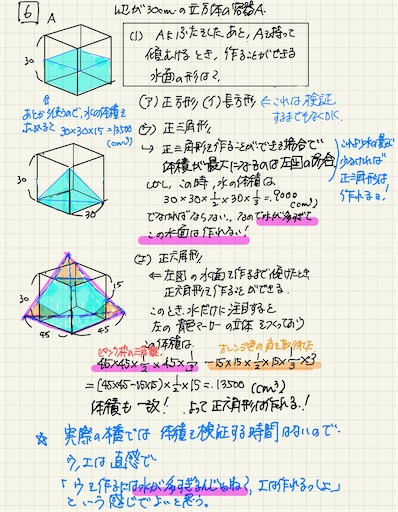 6
A
一辺が30cmの立方体の容器A
(1) Aにふたをしたあと、Aを持って
傾むけるとき、作ることができる
水面の形は?
30
あとから使うので、水の体積を
求めると 30×30×15=13500
(cm³)
(ア)正方形 (イ)長方形 ←これは検証
するまでもなくOK.
(ウ) 正三角形
→ 正三角形を作ることができる場合で
体積が最大になるのは左図の場合
しかし、この時、水の体積は
30×30×1/2×30×1/3=9000
(cm³)
でなければならない。なので水が多すぎて
この水面は作れない!
これより水の量が
少なければ
正三角形は
作れるよ!
30
30
(エ) 正六角形
←左図の水面を作るまで傾けたとき
正六角形を作ることができる.
このとき、水だけに注目すると
左の青色マーカーの立体をつくっており
この体積は.
ピンク枠の三角錐
オレンジ色の角を取り除く
45×45×1/2×45×1/3 - 15×15×1/2×15×1/3×3
=(45×45-15×15)×1/2×15=13500 (cm³)
体積も一致! よって正六角形は作れる!
15
30
45
45
☆ 実際の本番では 体積を検証する時間はないので.
ウ,エは直感で
「ウを作るには水が多すぎるんじゃね?, エは作れるっしょ」
という感じでよいと思う。